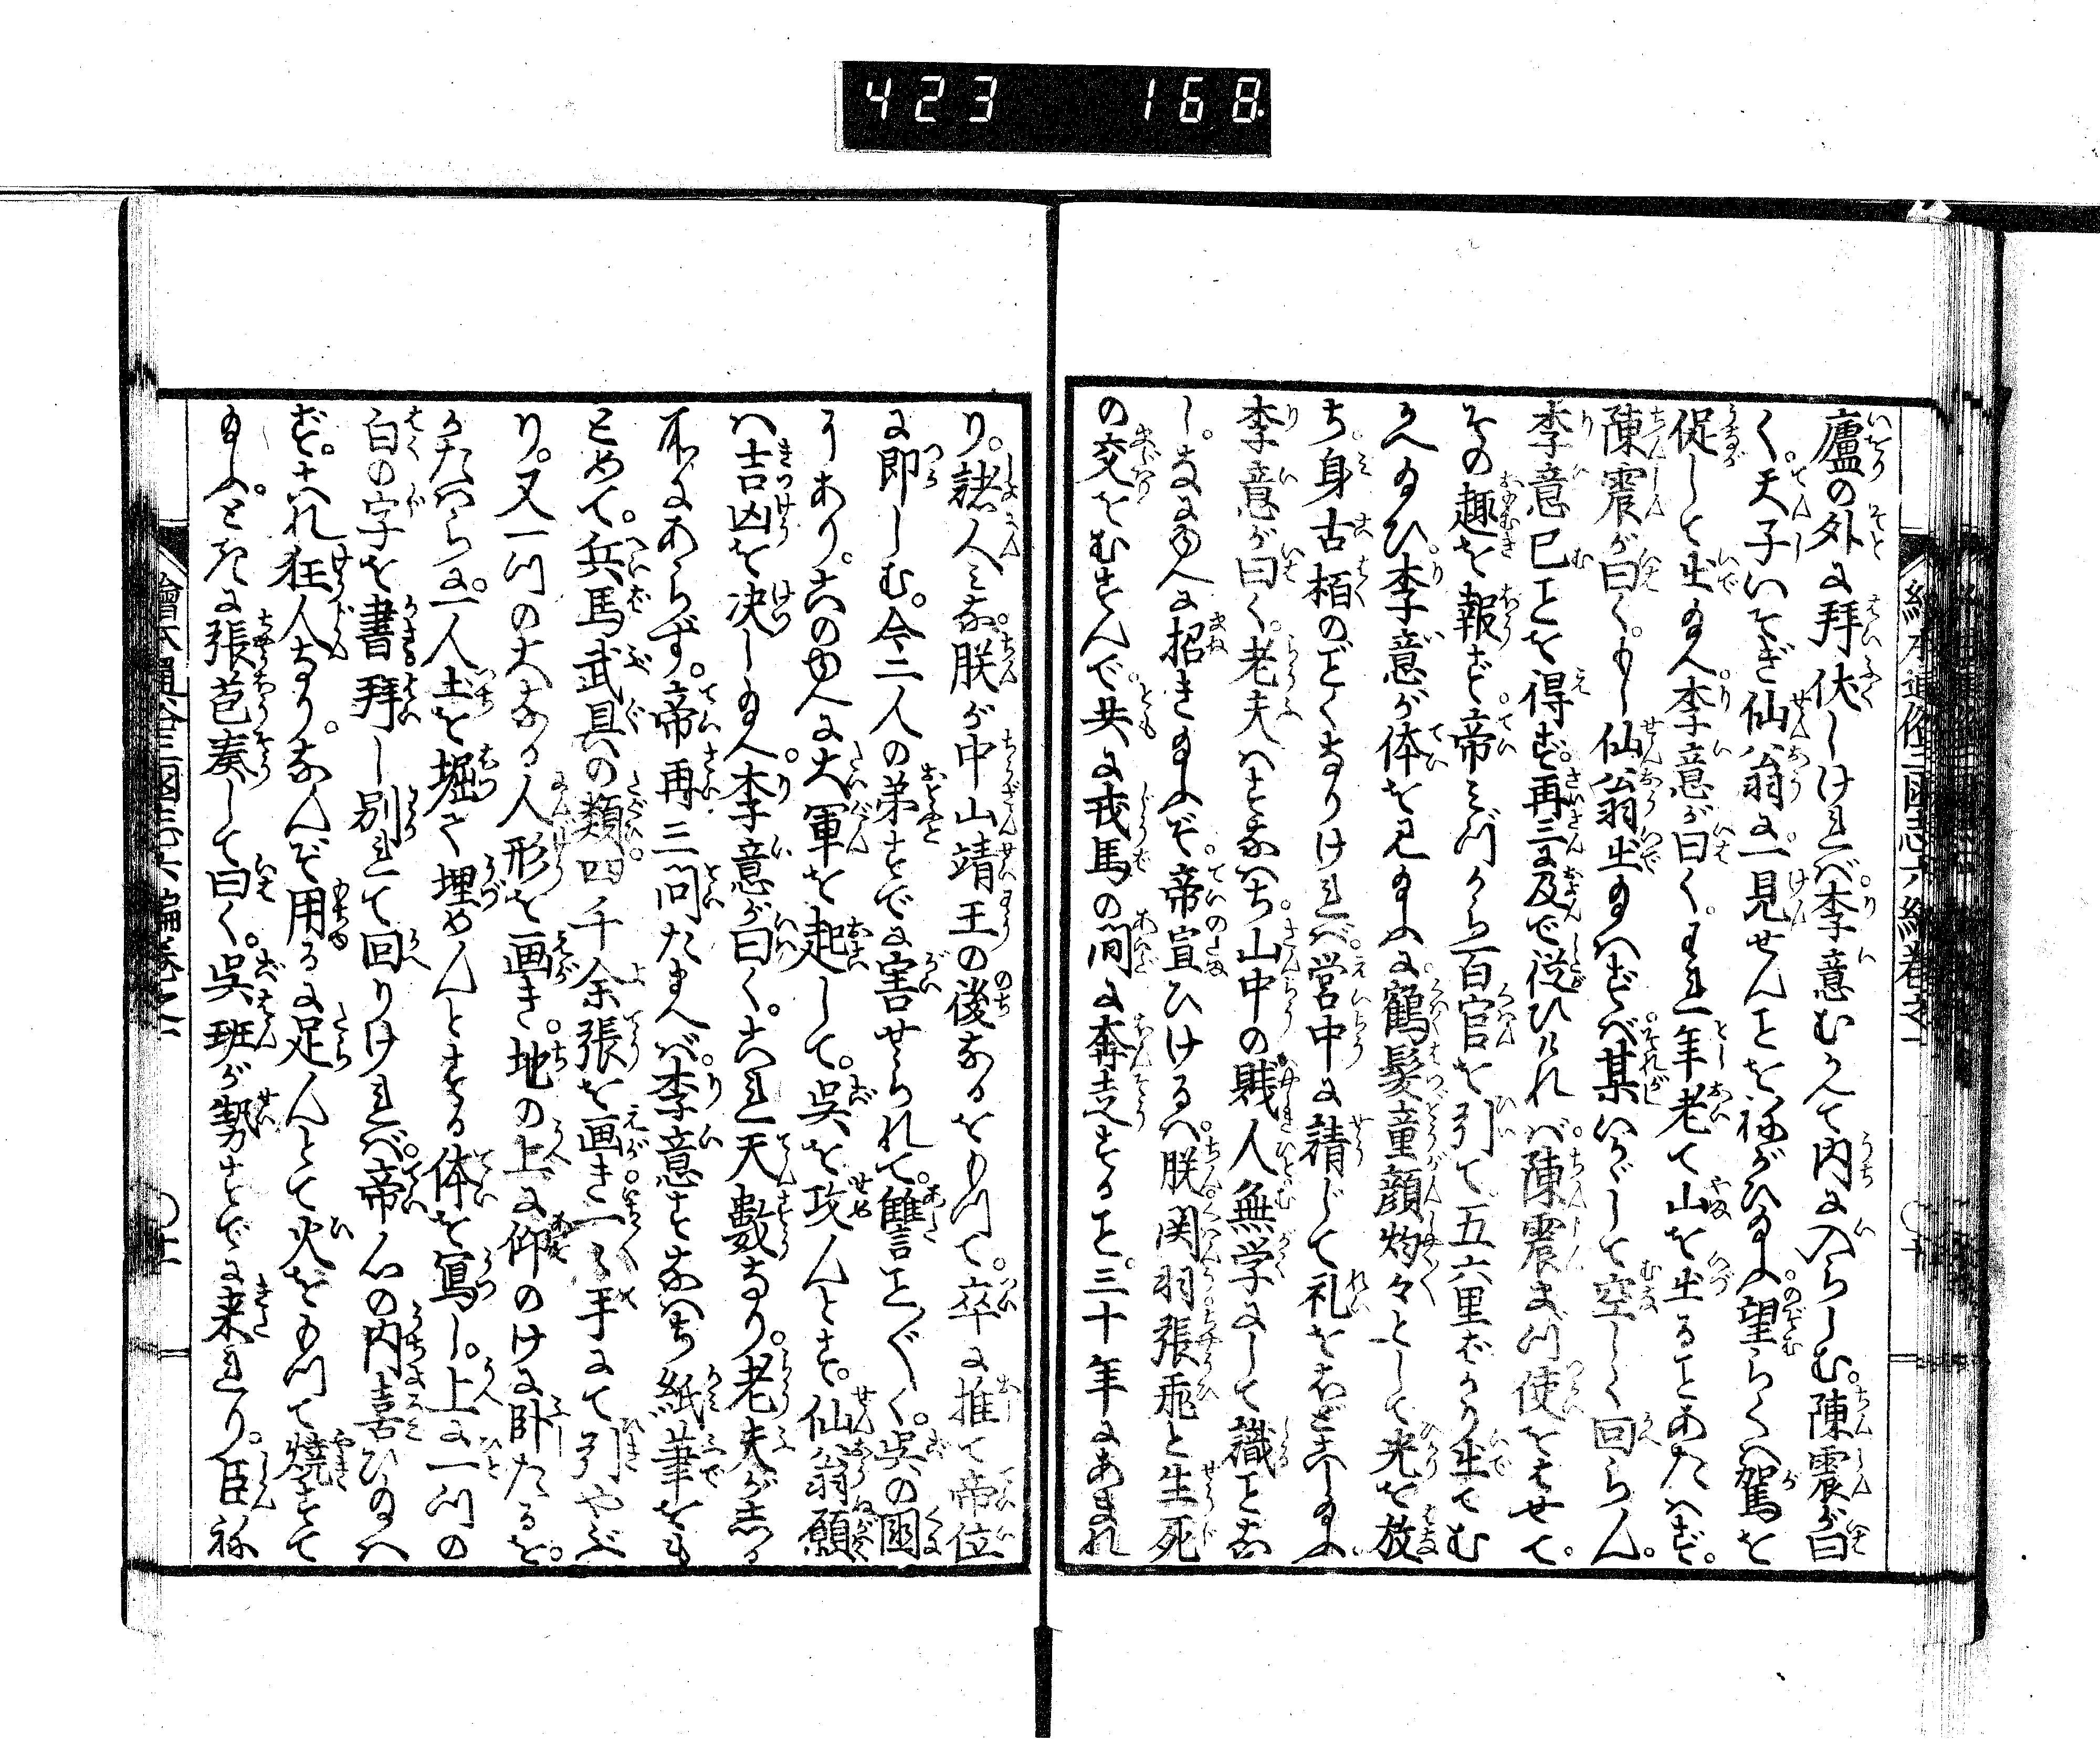 423 168
廬の外に拝伏しければ李意むかへて内に入らしむ。陳震が曰
く。天子いそぎ仙翁に一見せんことを祢がひ給ふ。望らくハ駕を
促して出給へ李意が曰く。われ年老て山を出ることあたハず。
陳震が曰く。もし仙翁出給ハずバ某いかにして空しく回らん。
李意已ことを得ず。再三に及で従ひけれバ。陳震まづ使をはせて。
その趣を報ず。帝ミづから百官を引て五六里ばかり出てむ
かへ給ひ。李意が体を見給ふに。鶴髪童顔灼々として光を放
ち。身古栢のごとくなりけれバ。営中に請じて礼をほどこし給ふ。
李意が曰く。老夫ハすなハち。山中の賎人無学にして識ことな
し。なに由へに招き給ふぞ。帝宣ひけるハ。朕関羽張飛と生死
の交をむすんで。共に戎馬の間に奔走すること。三十年にあまれ
り。諸人ミな。朕が中山靖王の後なるをもつて。卒に推て帝位
に即しむ。今二人の弟すでに害せられて。讐ことごとく。呉の国
にあり。この由へに大軍を起して。呉を攻んとす。仙翁願
ハ吉凶を決し給へ。李意が曰く。これ天数なり。老夫が志る
所にあらず。帝再三問たまへバ。李意すなハち紙筆をも
とめて。兵馬武具の類。四千余張を画き。一々手にて引やぶ
り。又一つの大なる人形を画き。地の上に仰のけに臥たるを。
かたハらに。一人土を堀て埋めんとする体を写し。上に一つの
白の字を書。拝し別れて回りけれバ。帝心の内喜び給ハ
ず。これ狂人なり。なんぞ用るに足んとて火をもつて焼すて
給ふ。ときに張苞奏して曰く。呉班が勢すでに来れり。臣祢